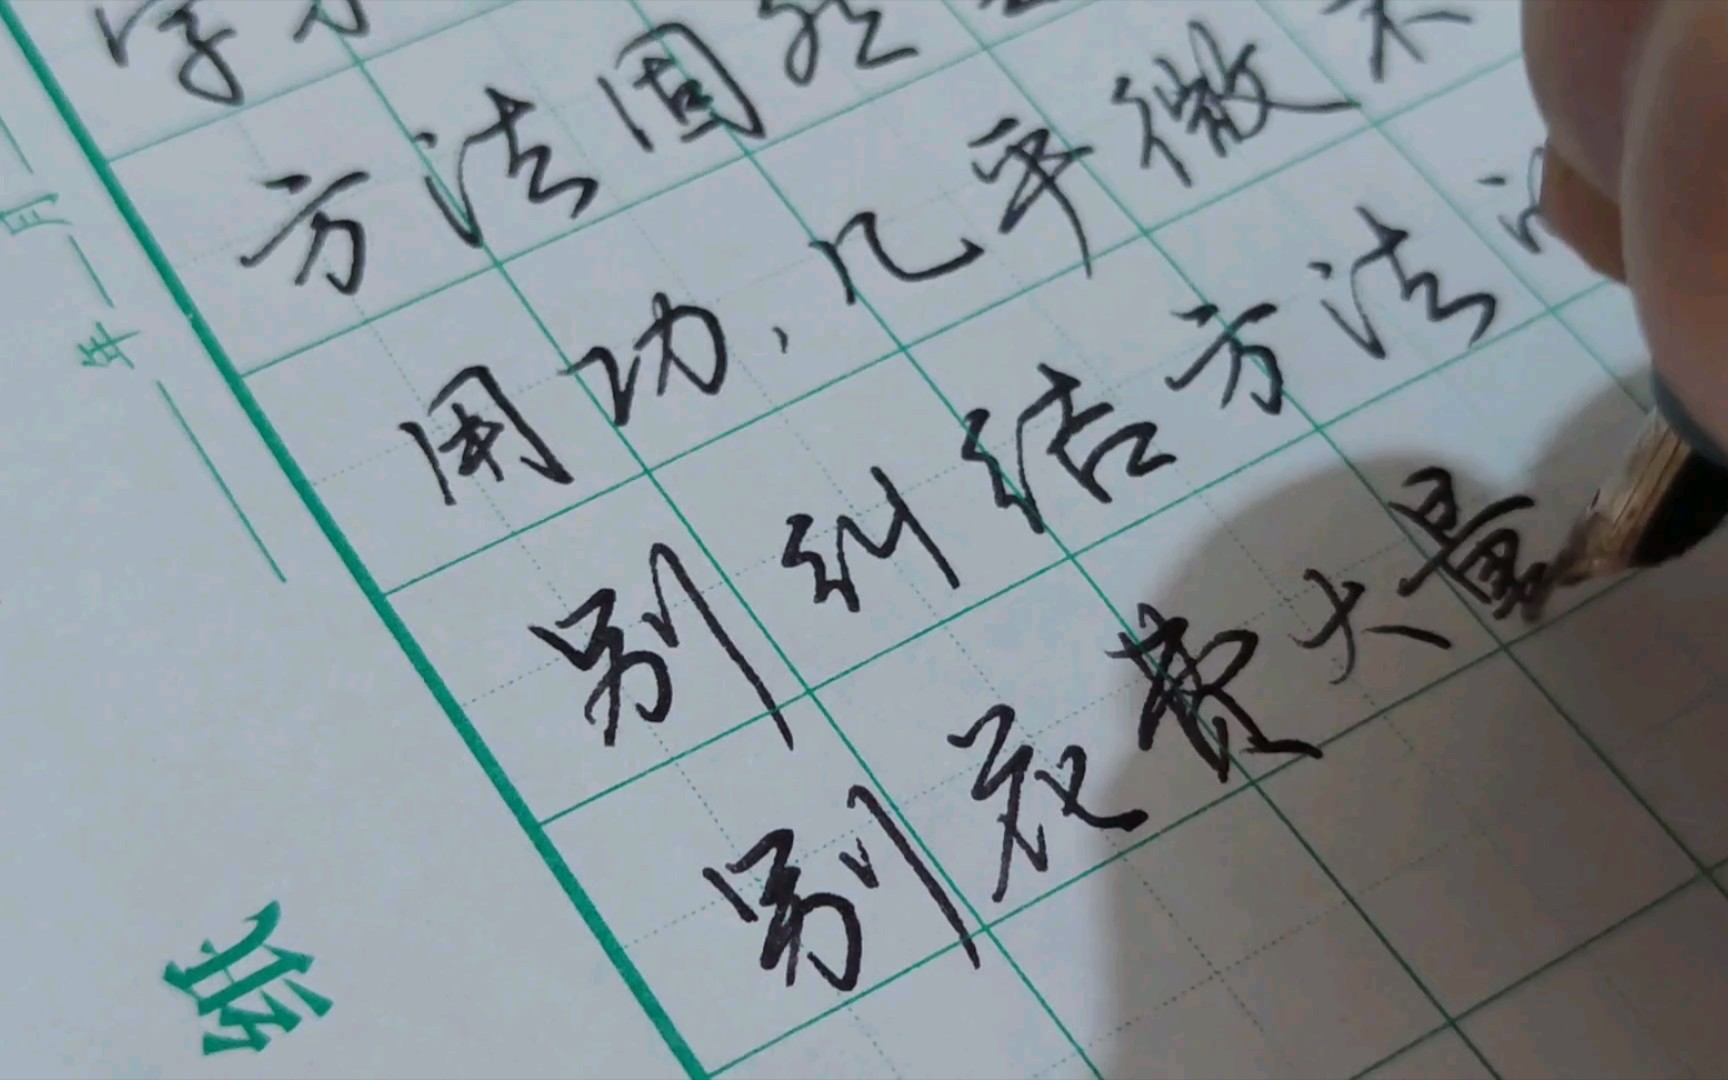 学习
方法固然
用功，几乎微不
别纠结方法
别花费大量
月
年